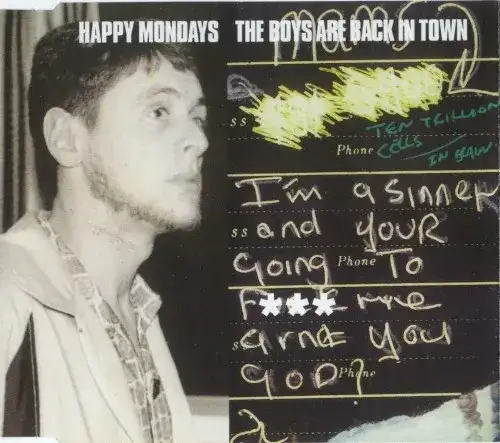 HAPPY MONDAYS THE BOYS ARE BACK IN TOWN
mams
ss
TEN TRILLION
Phone CELLS
IN BRAIN
I'm a sinner
ss and YOUR
Going Phone To
F***E me
s arne you
GOD? Phone